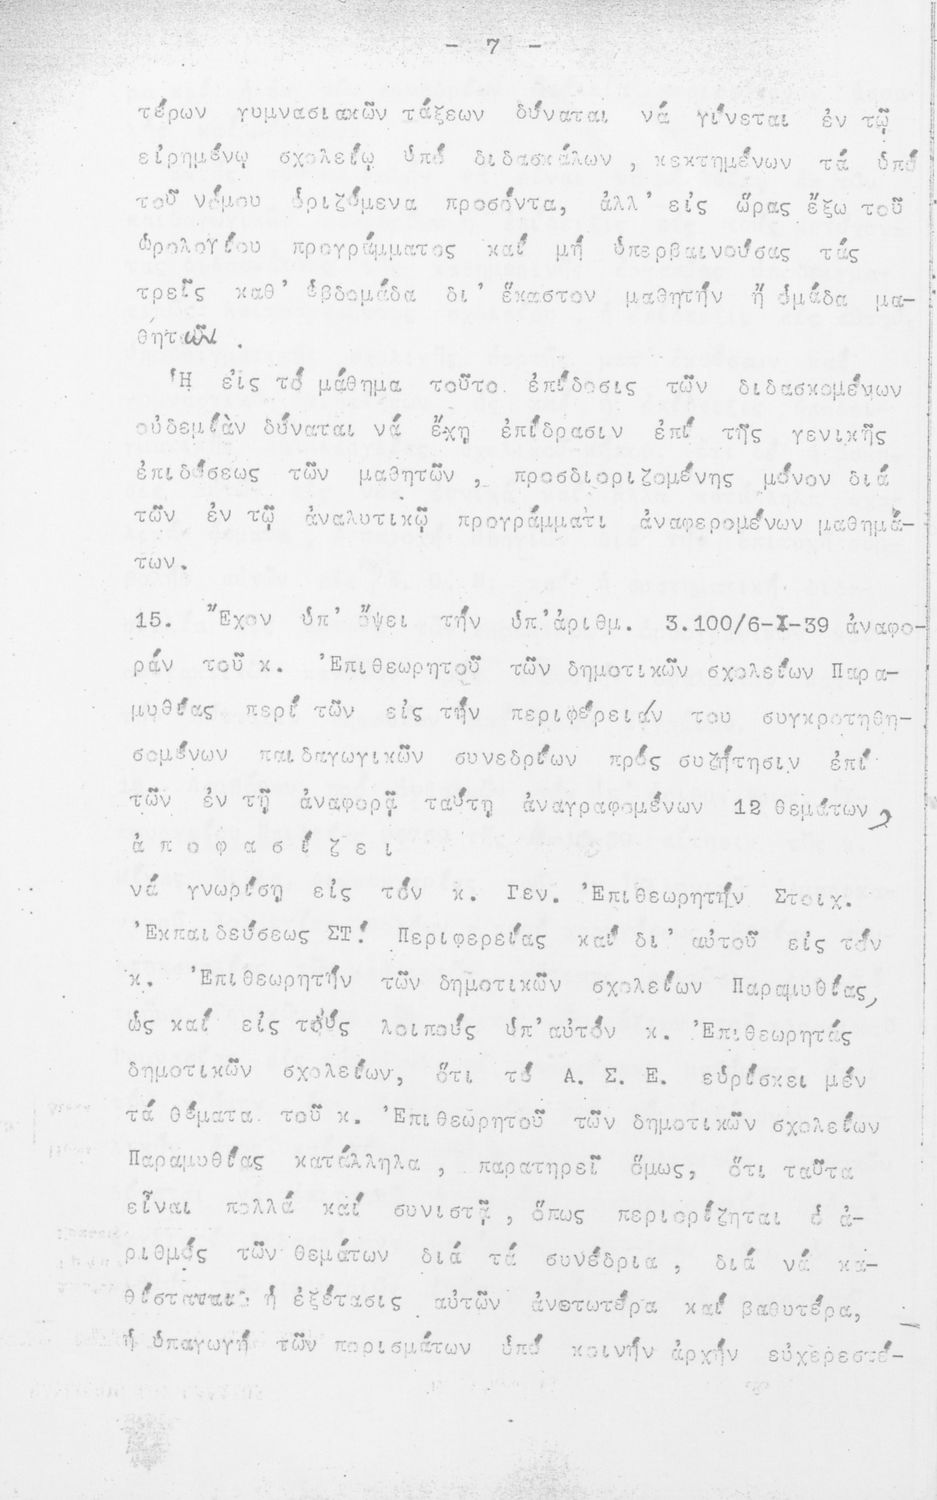 - 7 -
τέρων γυμνασιακῶν τάξεων δύναται νά γίνεται ἐν τῷ
εἰρημένῳ σχολείῳ ὑπό διδασκάλων , κεκτημένων τά ὑπό
τοῦ νόμου ὁριζόμενα προσόντα, ἀλλ' εἰς ὥρας ἔξω τοῦ
ὡρολογίου προγράμματος καί μή ὑπερβαινούσας τάς
τρεῖς καθ' ἑβδομάδα δι' ἕκαστον μαθητήν ἤ ὁμάδα μα-
θητῶν .
Ἡ εἰς τό μάθημα τοῦτο ἐπίδοσις τῶν διδασκομένων
οὐδεμίὰν δύναται νά ἔχῃ ἐπίδρασιν ἐπί τῆς γενικῆς
ἐπιδόσεως τῶν μαθητῶν , προσδιοριζομένης μόνον διά
τῶν ἐν τῷ ἀναλυτικῷ προγράμματι ἀναφερομένων μαθημά-
των.
15. Ἔχον ὑπ' ὄψει τήν ὑπ'ἀριθμ. 3.100/6-I-39 ἀναφο-
ράν τοῦ κ. Ἐπιθεωρητοῦ τῶν δημοτικῶν σχολείων Παρα-
μυθίας περί τῶν εἰς τήν περιφέρειάν του συγκροτηθη-
σομένων παιδαγωγικῶν συνεδρίων πρός συζήτησιν ἐπί
τῶν ἐν τῇ ἀναφορᾷ ταύτῃ ἀναγραφομένων 12 θεμάτων,
ἀ π ο φ α σ ί ζ ε ι
νά γνωρίσῃ εἰς τόν κ. Γεν. Ἐπιθεωρητήν Στοιχ.
Ἐκπαιδεύσεως ΣΤ! Περιφερείας καί δι' αὐτοῦ εἰς τόν
κ. Ἐπιθεωρητήν τῶν δημοτικῶν σχολείων Παραμυθίας,
ὡς καί εἰς τούς λοιπούς ὑπ'αὐτόν κ. Ἐπιθεωρητάς
δημοτικῶν σχολείων, ὅτι τό Α. Σ. Ε. εὑρίσκει μέν
τά θέματα τοῦ κ. Ἐπιθεωρητοῦ τῶν δημοτικῶν σχολείων
Παραμυθίας κατάλληλα , παρατηρεῖ ὅμως, ὅτι ταῦτα
εἶναι πολλά καί συνιστᾷ , ὅπως περιορίζηται ὁ ἀ-
ριθμός τῶν θεμάτων διά τά συνέδρια , διά νά κα-
θίσταται ἡ ἐξέτασις αὐτῶν ἀνετωτέρα καί βαθυτέρα,
ἡ ὑπαγωγή τῶν πορισμάτων ὑπό κοινήν ἀρχήν εὐχερεστέ-